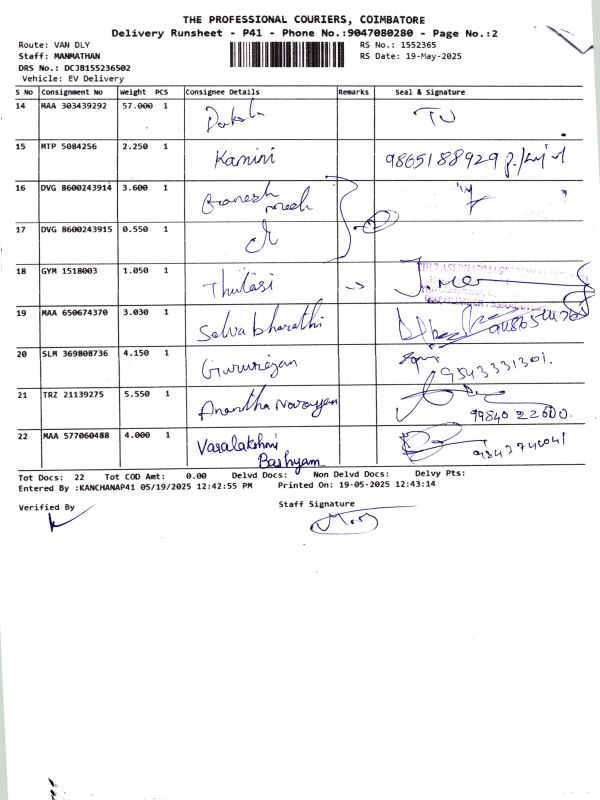 THE PROFESSIONAL COURIERS, COIMBATORE
Delivery Runsheet - P41 - Phone No.:9047080280 - Page No.:2
Route: VAN DLY RS No.: 1552365
Staff: MANMATHAN RS Date: 19-May-2025
DRS No.: DCJB155236502
Vehicle: EV Delivery
S No Consignment No Weight PCS Consignee Details Remarks Seal & Signature
14 MAA 303439292 57.000 1
15 MTP 5084256 2.250 1 Kamini 9865188929
16 DVG 8600243914 3.600 1 Ganesh
17 DVG 8600243915 0.550 1
18 GYM 1518003 1.050 1 Thulasi
19 MAA 650674370 3.030 1 Selvabharathi
20 SLM 369808736 4.150 1 Gururajan 9543331301.
21 TRZ 21139275 5.550 1 Anantha Narayan 99840 22600.
22 MAA 577060488 4.000 1 Varalakshmi
Bashyam
Tot Docs: 22 Tot COD Amt: 0.00 Delvd Docs: Non Delvd Docs: Delvy Pts:
Entered By :KANCHANAP41 05/19/2025 12:42:55 PM Printed On: 19-05-2025 12:43:14
Verified By Staff Signature